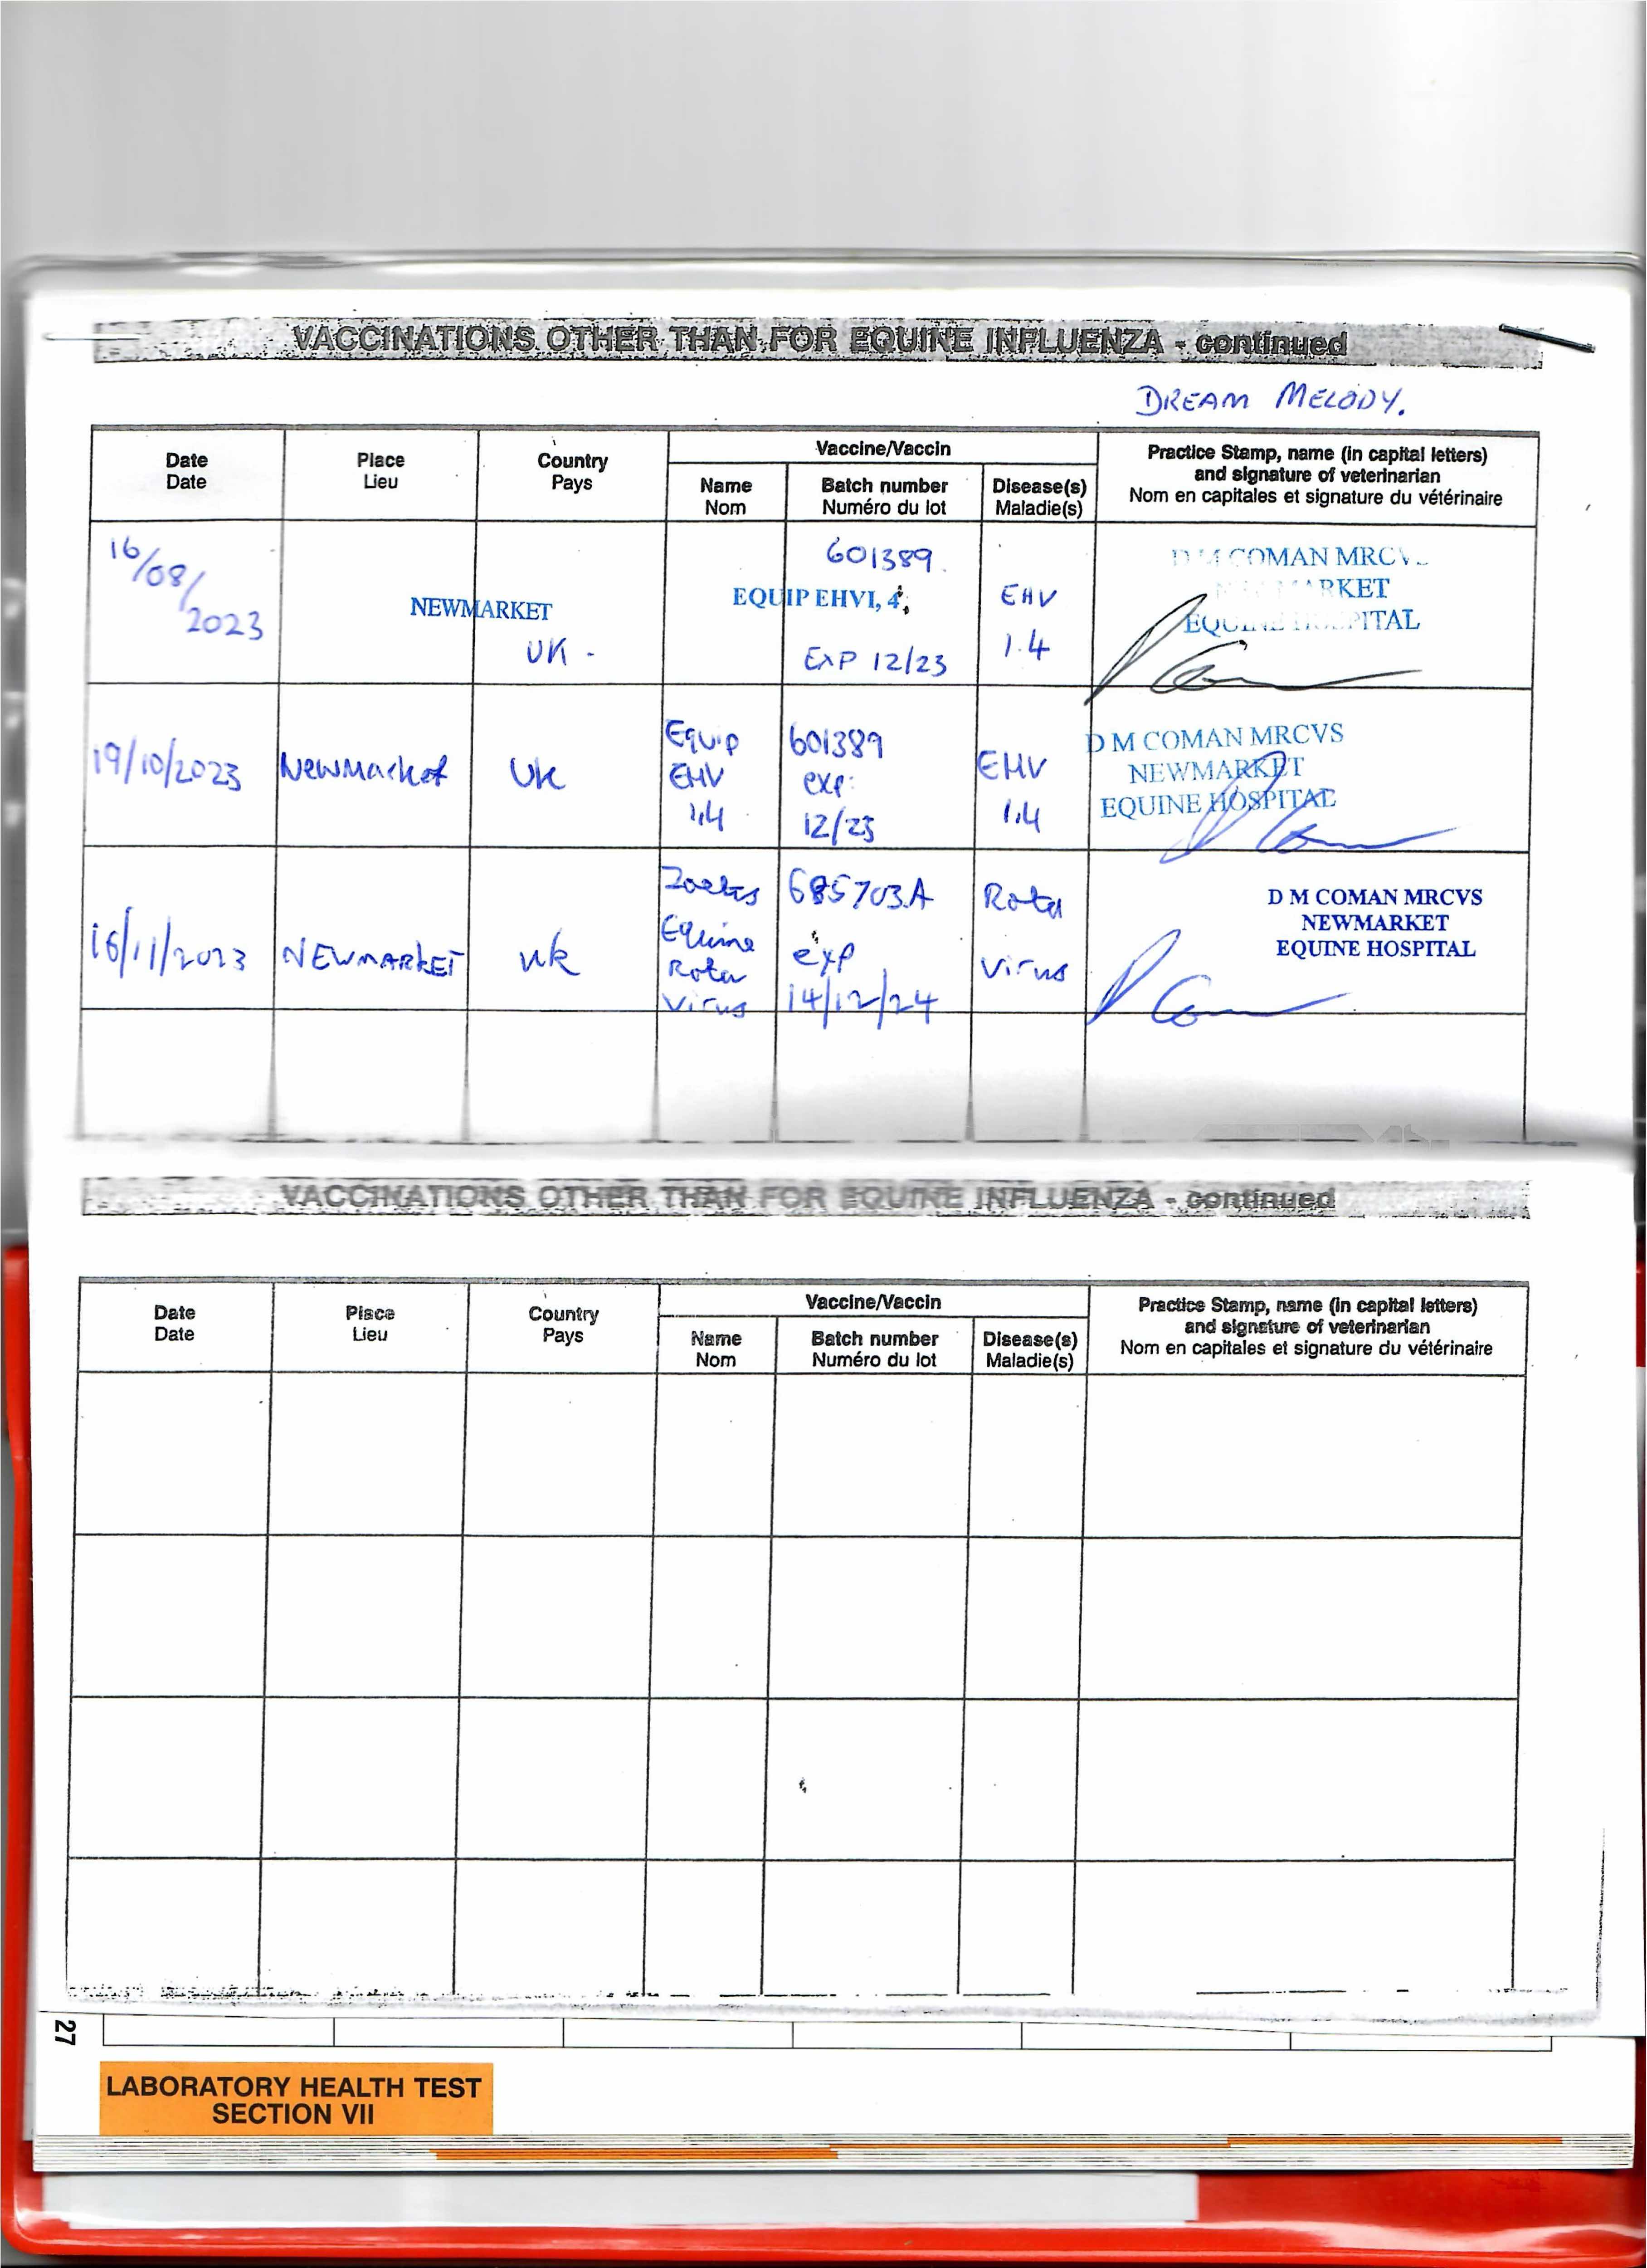 VACCINATIONS OTHER THAN FOR EQUINE INFLUENZA - continued
DREAM MELODY.
Date
Date
Place
Lieu
Country
Pays
Vaccine/Vaccin
Name
Nom
Batch number
Numéro du lot
Disease(s)
Maladie(s)
Practice Stamp, name (in capital letters)
and signature of veterinarian
Nom en capitales et signature du vétérinaire
16/08/
2023
NEWMARKET
UK -
601389.
EQUIP EHVI, 4,
EXP 12/23
EHV
1.4
D M COMAN MRCVS
NEWMARKET
EQUINE HOSPITAL
19/10/2023
Newmarket
UK
Equip
EHV
1,4
601389
exp:
12/23
EHV
1.4
D M COMAN MRCVS
NEWMARKET
EQUINE HOSPITAL
16/11/2023
NEWMARKET
UK
Zoetis
Equine
Rota
Virus
685703A
exp
14/12/24
Rota
Virus
D M COMAN MRCVS
NEWMARKET
EQUINE HOSPITAL
VACCINATIONS OTHER THAN FOR EQUINE INFLUENZA - continued
Date
Date
Place
Lieu
Country
Pays
Vaccine/Vaccin
Name
Nom
Batch number
Numéro du lot
Disease(s)
Maladie(s)
Practice Stamp, name (in capital letters)
and signature of veterinarian
Nom en capitales et signature du vétérinaire
27
LABORATORY HEALTH TEST
SECTION VII